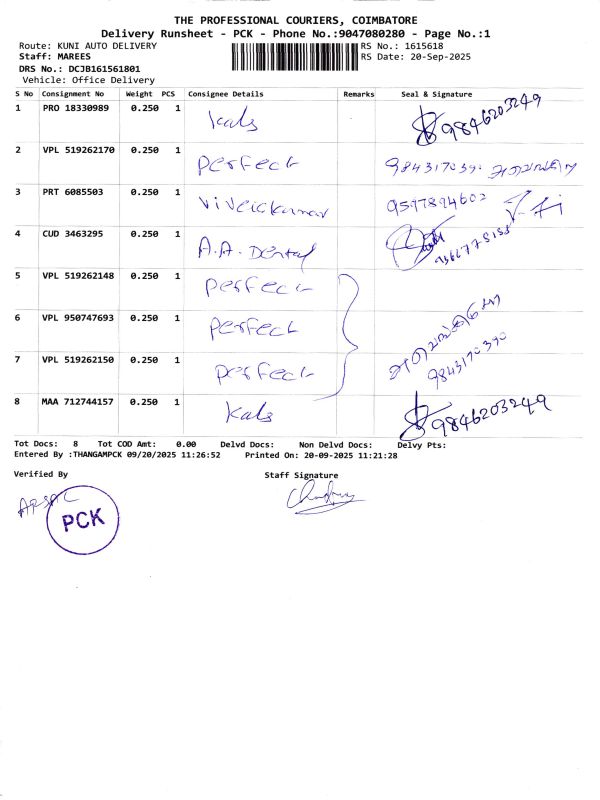 THE PROFESSIONAL COURIERS, COIMBATORE
Delivery Runsheet - PCK - Phone No.:9047080280 - Page No.:1
Route: KUNI AUTO DELIVERY RS No.: 1615618
Staff: MAREES RS Date: 20-Sep-2025
DRS No.: DCJB161561801
Vehicle: Office Delivery
S No Consignment No Weight PCS Consignee Details Remarks Seal & Signature
1 PRO 18330989 0.250 1 Kals 9846203249
2 VPL 519262170 0.250 1 perfect
3 PRT 6085503 0.250 1
4 CUD 3463295 0.250 1 A.A. Dental
5 VPL 519262148 0.250 1 perfect
6 VPL 950747693 0.250 1 perfect
7 VPL 519262150 0.250 1 perfect 9843170390
8 MAA 712744157 0.250 1 Kals 9846203249
Tot Docs: 8 Tot COD Amt: 0.00 Delvd Docs: Non Delvd Docs: Delvy Pts:
Entered By :THANGAMPCK 09/20/2025 11:26:52 Printed On: 20-09-2025 11:21:28
Verified By Staff Signature
PCK